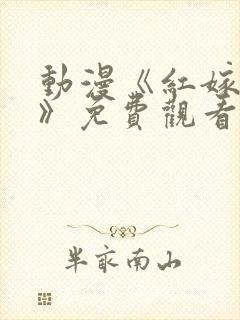 動漫《紅嫁
》免費觀看
半畝南山